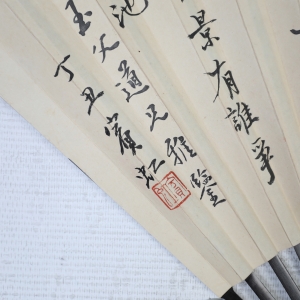 景有誰爭
池
玉父道兄雅鑒
丁丑賓虹